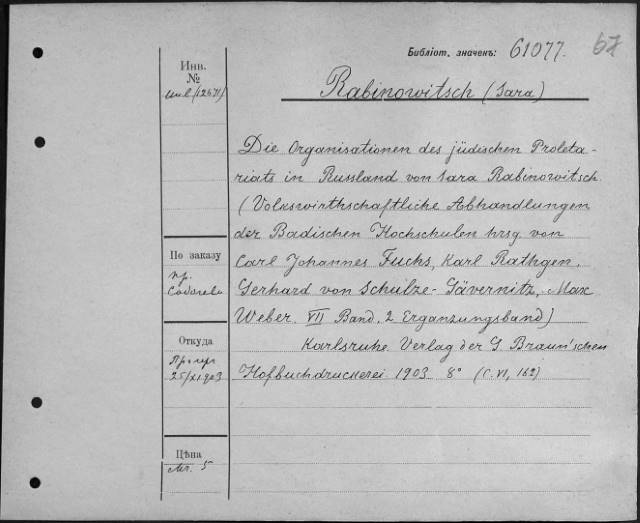 Библіот. значенъ: 61077. 67
Инв.
№
инв(12671)
Rabinowitsch (Sara)
Die Organisationen des jüdischen Proleta-
riats in Russland von Sara Rabinowitsch
(Volkswirthschaftliche Abhandlungen
der Badischen Hochschulen hrsg. von
Carl Johannes Fuchs, Karl Rathgen,
Gerhard von Schulze-Gävernitz, Max
Weber. VII Band. 2 Ergänzungsband)
Karlsruhe Verlag der G Braun'schen
Hofbuchdruckerei 1903 8° (С. VI, 162)
По заказу
пр.
Откуда
25/XI 903
Цѣна
Мг. 5